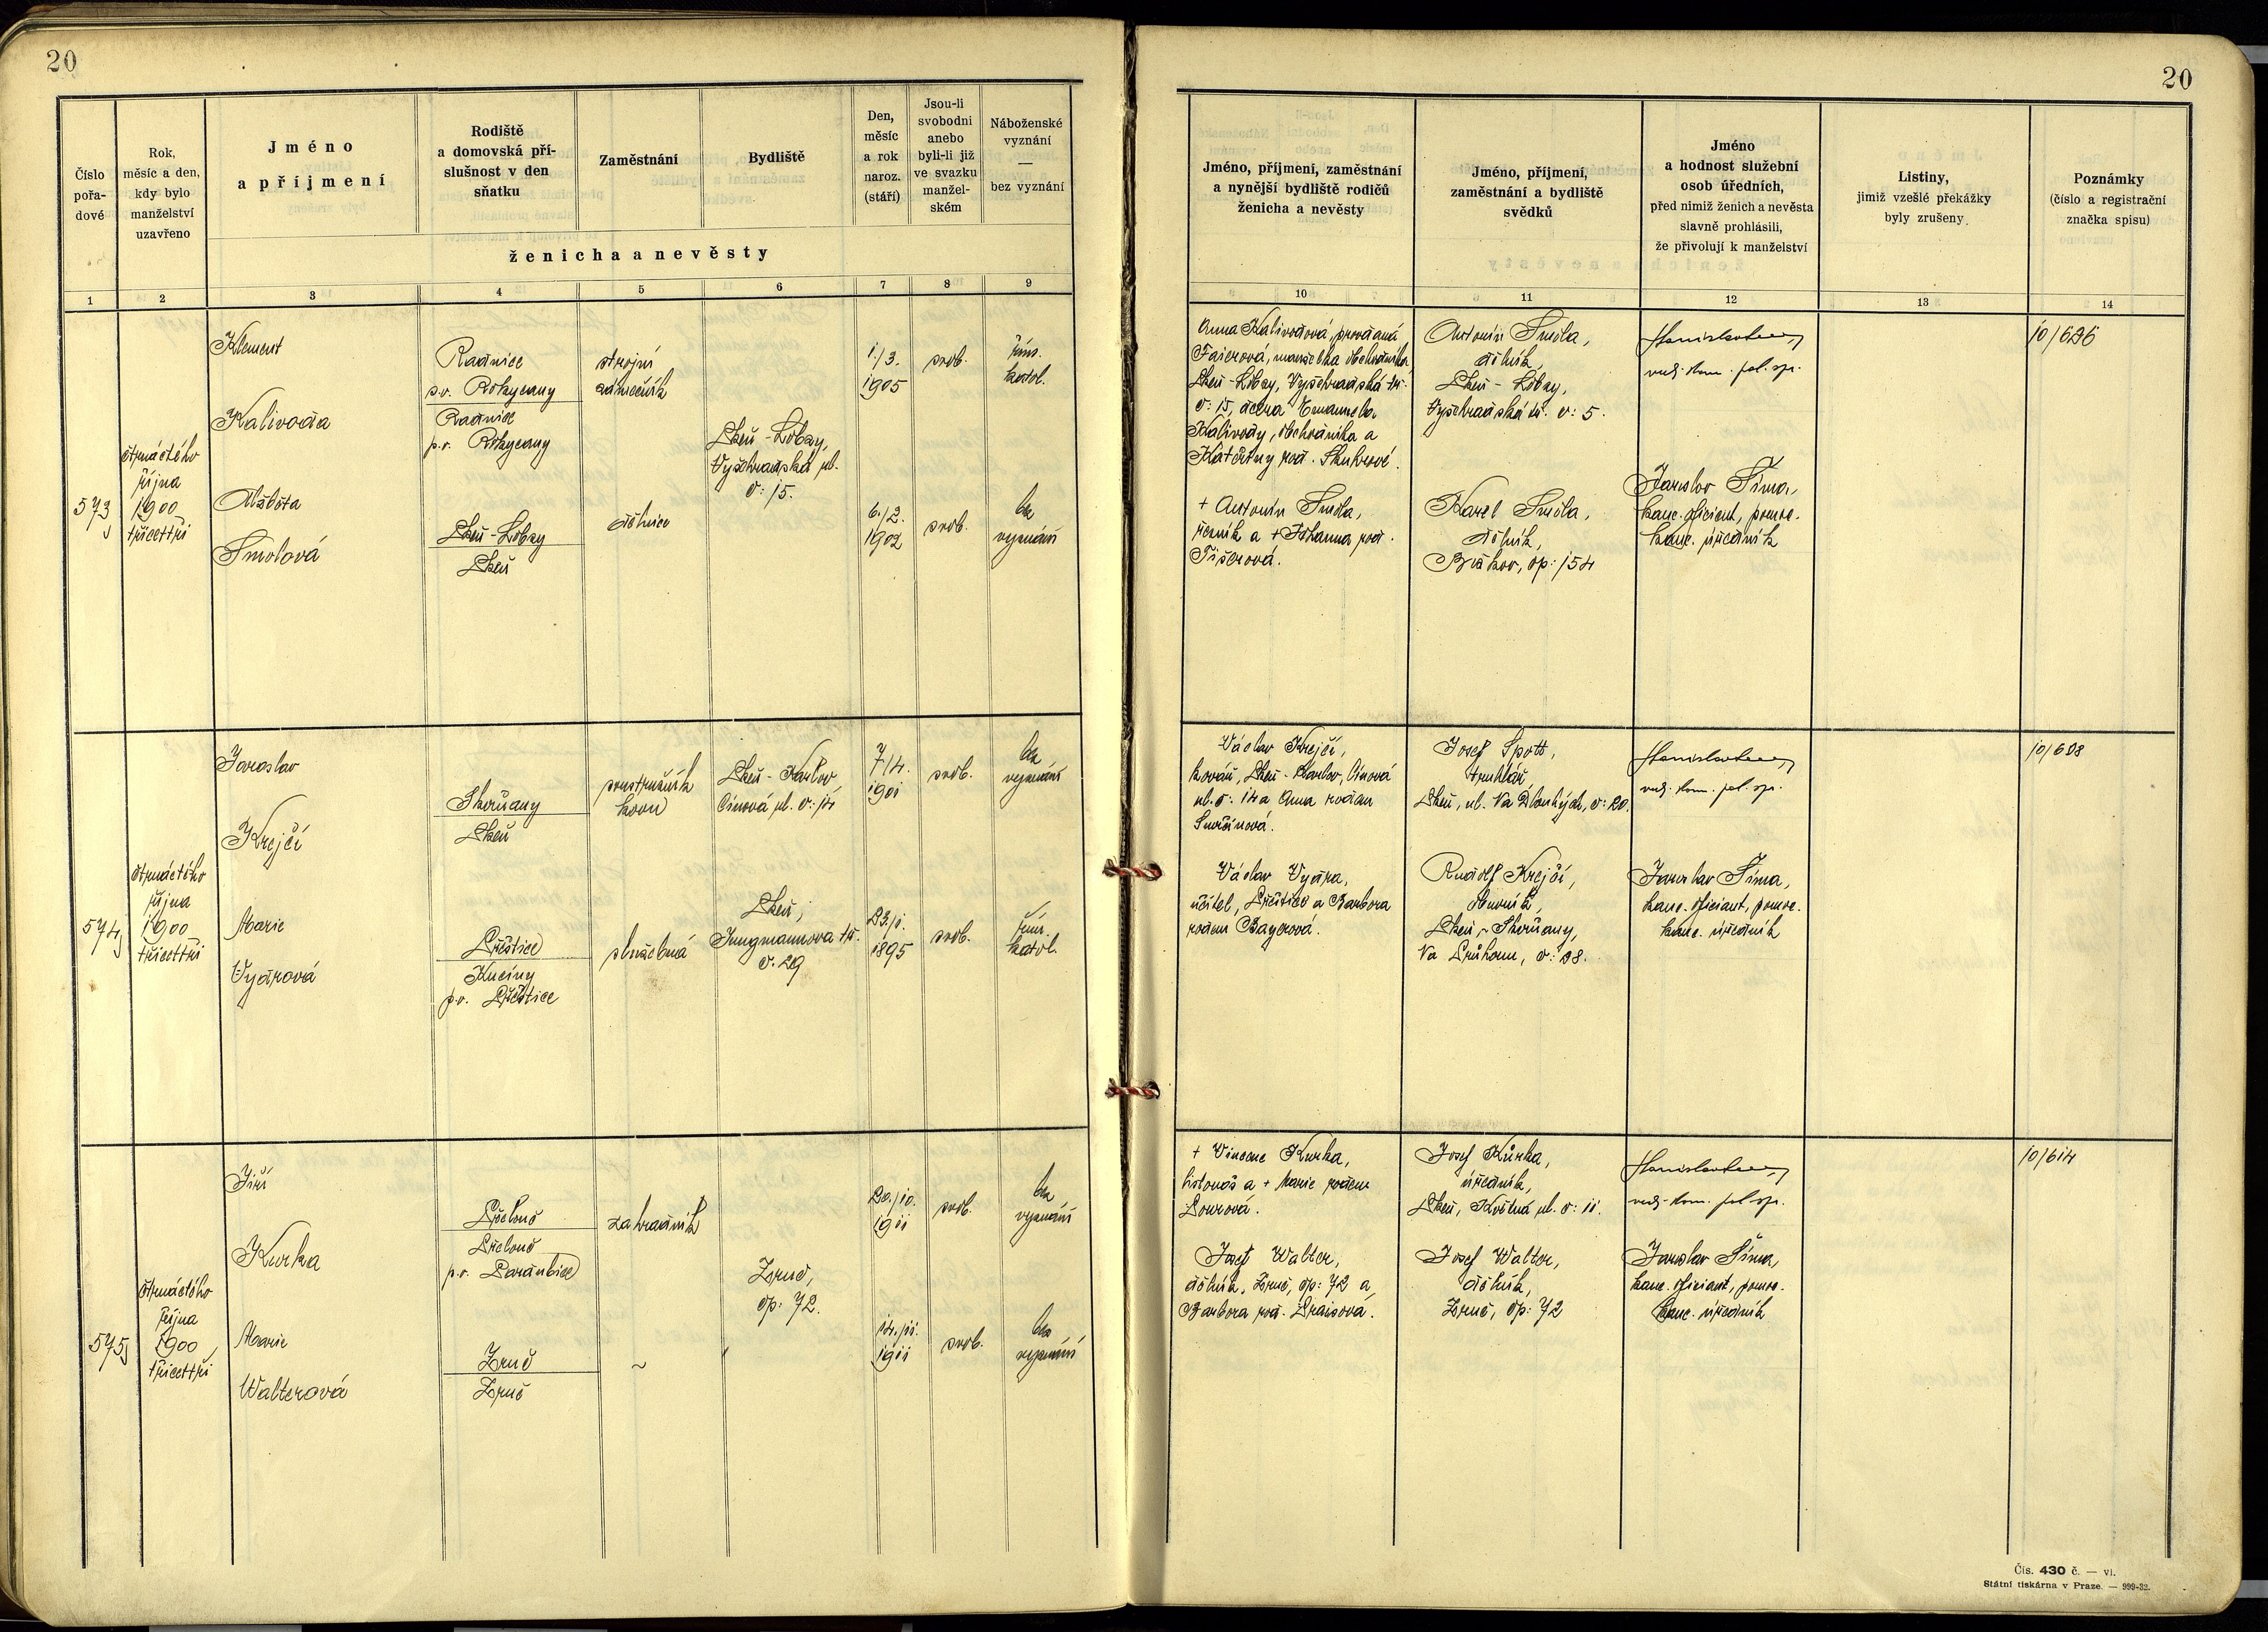 20
Číslo
pořa-
dové
Rok,
měsíc a den,
kdy bylo
manželství
uzavřeno
Jméno
a příjmení
Rodiště
a domovská pří-
slušnost v den
sňatku
Zaměstnání
Bydliště
Den,
měsíc
a rok
naroz.
(stáří)
Jsou-li
svobodni
anebo
byli-li již
ve svazku
manžel-
ském
Náboženské
vyznání
—
bez vyznání
ženicha a nevěsty
1 2 3 4 5 6 7 8 9
573
čtrnáctého
října
1900
třicettři
Klement
Kalivoda
Radnice
p.o. Rokycany
Radnice
p.o. Rokycany
strojní
zámečník
Plzeň-Lobzy,
Vyšehradská ul.
č: 15.
1./3.
1905
svob.
řím.
katol.
Alžběta
Smolová
Plzeň-Lobzy
Plzeň
dělnice
6./2.
1902
svob.
bez
vyznání
574
čtrnáctého
října
1900
třicettři
Jaroslav
Krejčí
Skvrňany
Plzeň
soustružník
kovu
Plzeň-Karlov,
Cínová ul. č: 14
7/4.
1901
svob.
bez
vyznání
Marie
Vydrová
Přeštice
Kucíny
p.o. Přeštice
služebná
Plzeň,
Jungmannova tř.
č. 29
23./1.
1895
svob.
řím.
katol.
575
čtrnáctého
října
1900
třicettři
Jiří
Kurka
Přelouč
Přelouč
p.o. Pardubice
zahradník
Zruč,
čp: 72.
20./10.
1911
svob.
bez
vyznání
Marie
Walterová
Zruč
Zruč
~
14./11.
1911
svob.
bez
vyznání
20
Jméno, příjmení, zaměstnání
a nynější bydliště rodičů
ženicha a nevěsty
Jméno, příjmení,
zaměstnání a bydliště
svědků
Jméno
a hodnost služební
osob úředních,
před nimiž ženich a nevěsta
slavně prohlásili,
že přivolují k manželství
Listiny,
jimiž vzešlé překážky
byly zrušeny
Poznámky
(číslo a registrační
značka spisu)
10 11 12 13 14
Anna Kalivodová, provdaná
Faierová, manželka obchodníka
Plzeň-Lobzy, Vyšehradská tř.
č: 15, dcera Emanuela
Kalivody, obchodníka a
Kateřiny roz.
+ Antonín Smola,
řezník a + Johanna roz.
Tišerová.
Antonín Smola,
dělník,
Plzeň-Lobzy,
Vyšehradská tř. č: 5.
Karel Smola,
dělník,
čp: 154
vrch. kom. pol. spr.
Jaroslav Šíma,
kanc. oficiant, pomoc.
kanc. úředník
10/636
Václav Krejčí,
kovář, Plzeň-Karlov, Cínová
ul. č: 14 a Anna rozen
Josef Spott,
truhlář
Plzeň, ul. Na Dlouhých, č: 20.
vrch. kom. pol. spr.
10/608
Václav Vydra,
učitel, Přeštice a Barbora
rozen Bayerová.
Rudolf Krejčí,
Plzeň-Skvrňany,
Na Průhonu, č: 28.
Jaroslav Šíma,
kanc. oficiant, pomoc.
kanc. úředník
+ Vincenc Kurka,
listonoš a + Marie rozen
Josef Kůrka,
úředník,
Plzeň, Květná ul. č: 11.
vrch. kom. pol. spr.
10/614
Josef Walter,
dělník, Zruč, čp: 72 a
Barbora roz. Praisová.
Josef Walter,
dělník,
Zruč, čp: 72
Jaroslav Šíma,
kanc. oficiant, pomoc.
kanc. úředník
Čís. 430 č. — vi.
Státní tiskárna v Praze. — 999-32.